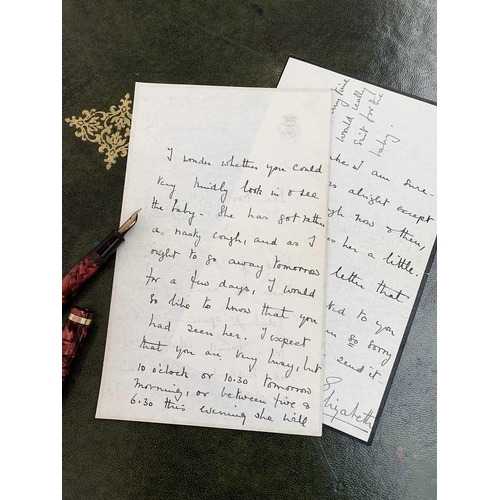 I wonder whether you could
very kindly look in & see
the baby. She has got rather
a nasty cough, and as I
ought to go away tomorrow
for a few days, I would
so like to know that you
had seen her. I expect
that you are very busy, but
10 o'clock or 10.30 tomorrow
morning, or between five &
6.30 this evening she will
time
would really
suit for the
baby.
I am sure.
alright except
now & then,
her a little.
letter that
to you
so sorry
send it.
Elizabeth